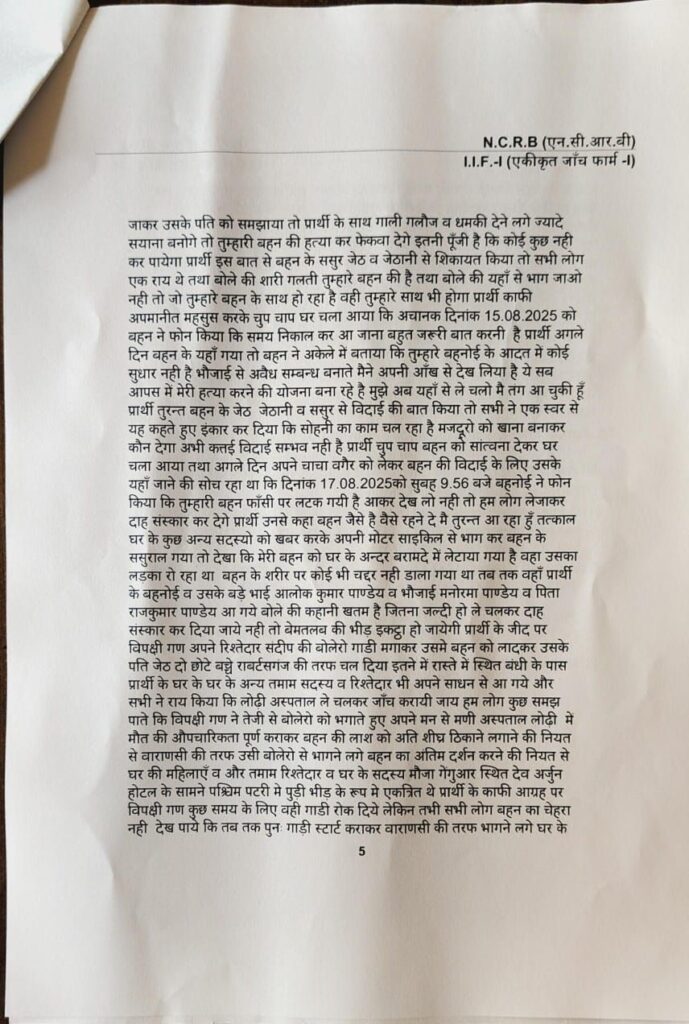 N.C.R.B (एन.सी.आर.बी)
I.I.F.-I (एकीकृत जाँच फार्म -I)
जाकर उसके पति को समझाया तो प्रार्थी के साथ गाली गलौज व धमकी देने लगे ज्यादे
सयाना बनोगे तो तुम्हारी बहन की हत्या कर फेकवा देगे इतनी पूँजी है कि कोई कुछ नही
कर पायेगा प्रार्थी इस बात से बहन के ससुर जेठ व जेठानी से शिकायत किया तो सभी लोग
एक राय थे तथा बोले की शारी गलती तुम्हारे बहन की है तथा बोले की यहाँ से भाग जाओ
नही तो जो तुम्हारे बहन के साथ हो रहा है वही तुम्हारे साथ भी होगा प्रार्थी काफी
अपमानीत महसुस करके चुप चाप घर चला आया कि अचानक दिनांक 15.08.2025 को
बहन ने फोन किया कि समय निकाल कर आ जाना बहुत जरूरी बात करनी है प्रार्थी अगले
दिन बहन के यहाँ गया तो बहन ने अकेले में बताया कि तुम्हारे बहनोई के आदत में कोई
सुधार नही है भौजाई से अवैध सम्बन्ध बनाते मैने अपनी आँख से देख लिया है ये सब
आपस में मेरी हत्या करने की योजना बना रहे है मुझे अब यहाँ से ले चलो मै तग आ चुकी हूँ
प्रार्थी तुरन्त बहन के जेठ जेठानी व ससुर से विदाई की बात किया तो सभी ने एक स्वर से
यह कहते हुए इंकार कर दिया कि सोहनी का काम चल रहा है मजदूरो को खाना बनाकर
कौन देगा अभी कत्तई विदाई सम्भव नही है प्रार्थी चुप चाप बहन को सांत्वना देकर घर
चला आया तथा अगले दिन अपने चाचा वगैर को लेकर बहन की विदाई के लिए उसके
यहाँ जाने की सोच रहा था कि दिनांक 17.08.2025को सुबह 9.56 बजे बहनोई ने फोन
किया कि तुम्हारी बहन फाँसी पर लटक गयी है आकर देख लो नही तो हम लोग लेजाकर
दाह संस्कार कर देगे प्रार्थी उनसे कहा बहन जैसे है वैसे रहने दे मै तुरन्त आ रहा हुँ तत्काल
घर के कुछ अन्य सदस्यो को खबर करके अपनी मोटर साइकिल से भाग कर बहन के
ससुराल गया तो देखा कि मेरी बहन को घर के अन्दर बरामदे में लेटाया गया है वहा उसका
लडका रो रहा था बहन के शरीर पर कोई भी चद्दर नही डाला गया था तब तक वहाँ प्रार्थी
के बहनोई व उसके बड़े भाई आलोक कुमार पाण्डेय व भौजाई मनोरमा पाण्डेय व पिता
राजकुमार पाण्डेय आ गये बोले की कहानी खतम है जितना जल्दी हो ले चलकर दाह
संस्कार कर दिया जाये नही तो बेमतलब की भीड़ इकट्ठा हो जायेगी प्रार्थी के जीद पर
विपक्षी गण अपने रिश्तेदार संदीप की बोलेरो गाडी मगाकर उसमे बहन को लादकर उसके
पति जेठ दो छोटे बच्चे राबर्टसगंज की तरफ चल दिया इतने में रास्ते में स्थित बंधी के पास
प्रार्थी के घर के घर के अन्य तमाम सदस्य व रिश्तेदार भी अपने साधन से आ गये और
सभी ने राय किया कि लोढ़ी अस्पताल ले चलकर जाँच करायी जाय हम लोग कुछ समझ
पाते कि विपक्षी गण ने तेजी से बोलेरो को भगाते हुए अपने मन से मणी अस्पताल लोढ़ी में
मौत की औपचारिकता पूर्ण कराकर बहन की लाश को अति शीघ्र ठिकाने लगाने की नियत
से वाराणसी की तरफ उसी बोलेरो से भागने लगे बहन का अंतिम दर्शन करने की नियत से
घर की महिलाएँ व और तमाम रिश्तेदार व घर के सदस्य मौजा गेंगुआर स्थित देव अर्जुन
होटल के सामने पश्चिम पटरी मे पुड़ी भीड़ के रूप मे एकत्रित थे प्रार्थी के काफी आग्रह पर
विपक्षी गण कुछ समय के लिए वही गाडी रोक दिये लेकिन तभी सभी लोग बहन का चेहरा
नही देख पाये कि तब तक पुनः गाड़ी स्टार्ट कराकर वाराणसी की तरफ भागने लगे घर के
5